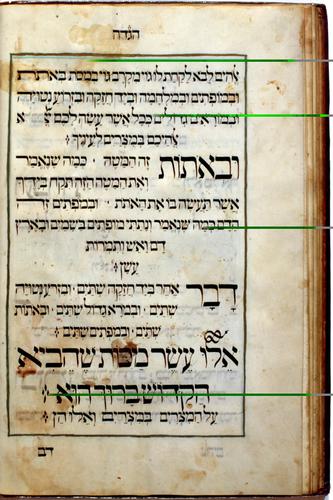 הגדה
אלהים לבא לקחת לו גוי מקרב גוי במסת באותת
ובמופתים ובמלחמה וביד חזקה ובזרוע נטויה
ובמוראים גדולים ככל אשר עשה לכם
אלהיכם במצרים לעיניך
ובאותות זה המטה כמה שנאמר
ואת המטה הזה תקח בידיך
אשר תעשה בו את האתת ובמפתים זה
הדם כמה שנאמר ונתתי מופתים בשמים ובארץ
דם ואש ותמרות
עשן
דבר אחר ביד חזקה שתים ובזרוע נטויה
שתים ובמרא גדול שתים ובאתות
שתים ובמפתים שתים
אלו עשר מכות שהביא
הקדוש ברוך הוא
על המצרים במצרים ואלו הן
דם